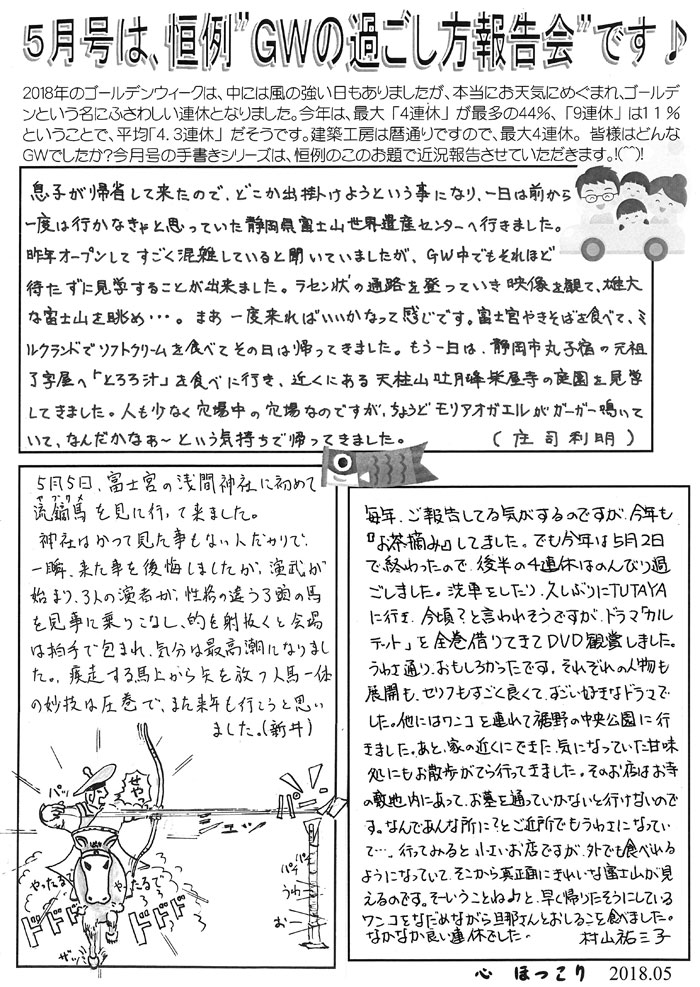 5月号は、恒例”GWの過ごし方報告会”です♪
2018年のゴールデンウィークは、中には風の強い日もありましたが、本当にお天気にめぐまれ、ゴールデ
ンという名にふさわしい連休となりました。今年は、最大「4連休」が最多の44%、「9連休」は11%
ということで、平均「4.3連休」だそうです。建築工房は暦通りですので、最大4連休。皆様はどんな
GWでしたか?今月号の手書きシリーズは、恒例のこのお題で近況報告させていただきます。!(⌒⌒)!
息子が帰省して来たので、どこか出掛けようという事になり、一日は前から
一度は行かなきゃと思っていた静岡県富士山世界遺産センターへ行きました。
昨年オープンしてすごく混雑していると聞いていましたが、GW中でもそれほど
待たずに見学することが出来ました。ラセン状の通路を登っていき映像を観て、雄大
な富士山を眺め・・・。まあ一度来ればいいかなって感じです。富士宮やきそばを食べて、ミ
ルクランドでソフトクリームを食べてその日は帰ってきました。もう一日は、静岡市丸子宿の元祖
丁字屋へ「とろろ汁」を食べに行き、近くにある天柱山吐月峰柴屋寺の庭園を見学
してきました。人も少なく穴場中の穴場なのですが、ちょうどモリアオガエルがガーガー鳴いて
いて、なんだかなぁ〜という気持ちで帰ってきました。 (庄司利明)
5月5日、富士宮の浅間神社に初めて
ヤブサメ
流鏑馬を見に行って来ました。
神社はかつて見た事もない人だかりで、
一瞬、来た事を後悔しましたが、演武が
始まり、3人の演者が、性格の違う3頭の馬
を見事に乗りこなし、的を射抜くと会場
は拍手で包まれ、気分は最高潮になりまし
た。疾走する馬上から矢を放つ人馬一体
の妙技は圧巻で、また来年も行こうと思い
ました。(新井)
パッ
せやっ
やったるで
やったるで
ドドド
ドドド
ザッ
パチ
パチ
うわ
お
毎年、ご報告してる気がするのですが、今年も
『お茶摘み』してました。でも今年は5月2日
で終わったので、後半の4連休はのんびり過
ごしました。洗車をしたり、久しぶりにTUTAYA
に行き、今頃?と言われそうですが、ドラマ「カル
テット」を全巻借りてきてDVD観賞しました。
うわさ通り、おもしろかったです。それぞれの人物も
展開も、セリフもすごく良くて、すごい好きなドラマで
した。他にはワンコを連れて裾野の中央公園に行
きました。あと、家の近くにできた、気になっていた甘味
処にもお散歩がてら行ってきました。そのお店はお寺
の敷地内にあって、お墓を通っていかないと行けないので
す。なんであんな所に?とご近所でもうわさになってい
て…。行ってみると小さいお店ですが、外でも食べれる
ようになっていて、そこから真正面にきれいな富士山が見
えるのです。そーいうことねみと、早く帰りたそうにしている
ワンコをなだめながら旦那さんとおしるこを食べました。
なかなか良い連休でした。 村山祐三子
心 ほっこり 2018.05